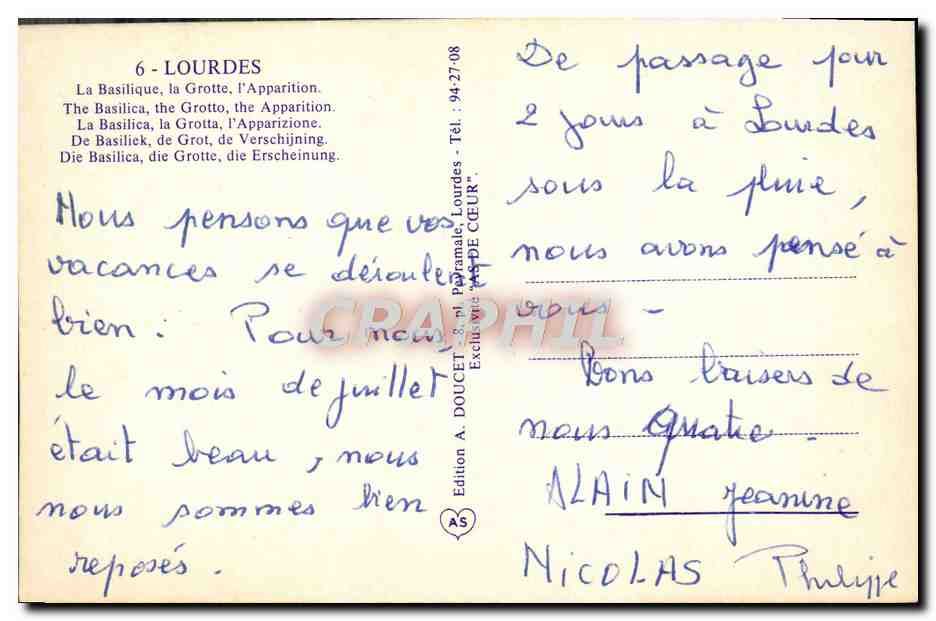 6 - LOURDES
La Basilique, la Grotte, l'Apparition.
The Basilica, the Grotto, the Apparition.
La Basilica, la Grotta, l'Apparizione.
De Basiliek, de Grot, de Verschijning.
Die Basilica, die Grotte, die Erscheinung.
Nous pensons que vos
vacances se déroulent
bien. Pour nous,
le mois de juillet
était beau, nous
nous sommes bien
reposés.
Edition A. DOUCET - 8, pl. Peyramale, Lourdes - Tél. : 94-27-08
Exclusivité "AS DE CŒUR".
AS
CRAPHIL
De passage pour
2 jours à Lourdes
sous la pluie,
nous avons pensé à
vous -
Bons baisers de
nous quatre -
ALAIN Jeanine
NICOLAS Philippe